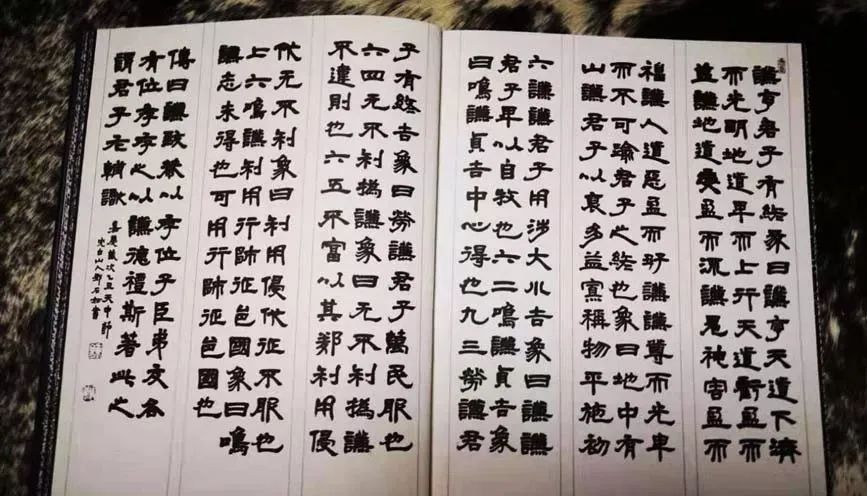 謙亨君子有終彖曰謙亨天道下濟
而光明地道卑而上行天道虧盈而
益謙地道變盈而流謙鬼神害盈而
福謙人道惡盈而好謙謙尊而光卑
而不可踰君子之終也象曰地中有
山謙君子以裒多益寡稱物平施初
六謙謙君子用涉大川吉象曰謙謙
君子卑以自牧也六二鳴謙貞吉象
曰鳴謙貞吉中心得也九三勞謙君
子有終吉象曰勞謙君子萬民服也
六四无不利撝謙象曰无不利撝謙
不違則也六五不富以其鄰利用侵
伐无不利象曰利用侵伐征不服也
上六鳴謙利用行師征邑國象曰鳴
謙志未得也可用行師征邑國也
傳曰謙致恭以存位子臣弟友各
有位存存之以謙德禮斯著此之
謂君子
嘉慶歲次乙丑天中節
完白山人鄧石如書